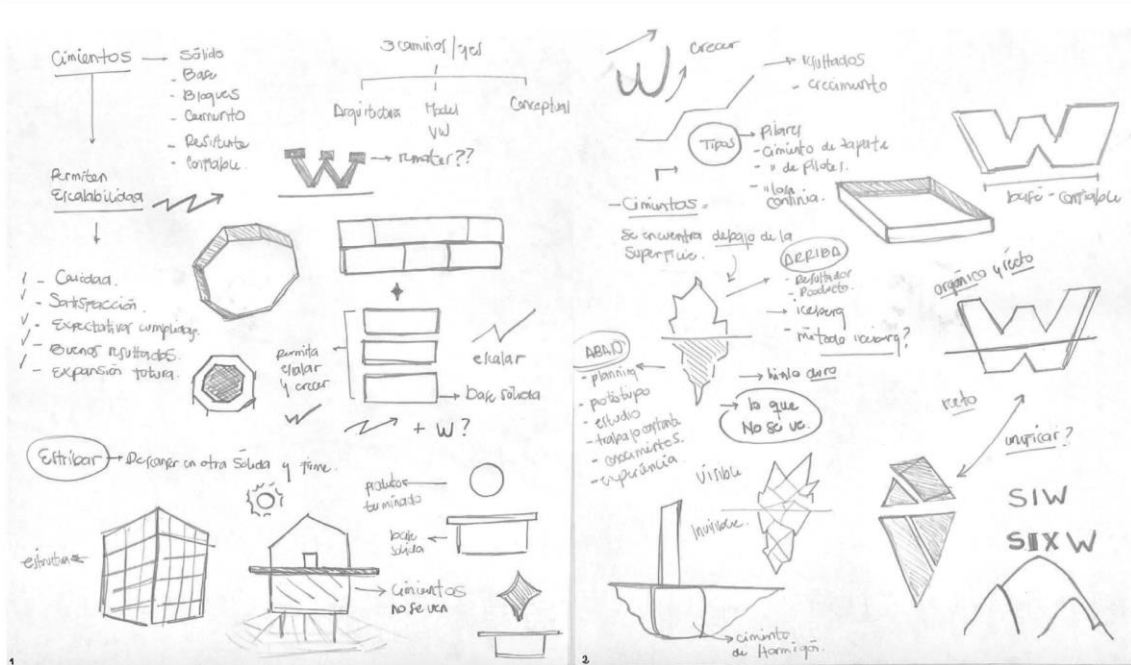 Cimientos
Sólido
- Base
- Bloques
- Cemento
- Resistente
- Confiable.
Permiten
Escalabilidad
- Calidad.
- Satisfacción.
- Expectativas cumplidas.
- Buenos resultados.
- Expansión futura.
3 caminos/ejes
Arquitectura
VW
Conceptual
W
remates??
permita
escalar
y crecer
escalar
base sólida
+ W?
Estribar
Descansar en otra sólida y firme.
estructura
producto
terminado
base
sólida
cimientos
no se ven
1
W
crecer
Resultados
- crecimiento
TIPOS
- Pilares
- Cimiento de zapata
- " de pilotes.
- " losa
continua.
W
base - confiable
- Cimientos.
Se encuentra debajo de la
Superficie.
ARRIBA
- Resultados
- Producto.
- iceberg
- método iceberg?
ABAJO
- planning
- prototipo
- estudio
- trabajo
- conocimientos.
- experiencia.
hielo duro
lo que
No se ve.
orgánico y recto
W
recto
unificar?
Visible
Invisible.
SIW
SIXW
cimiento
de Hormigón.
2